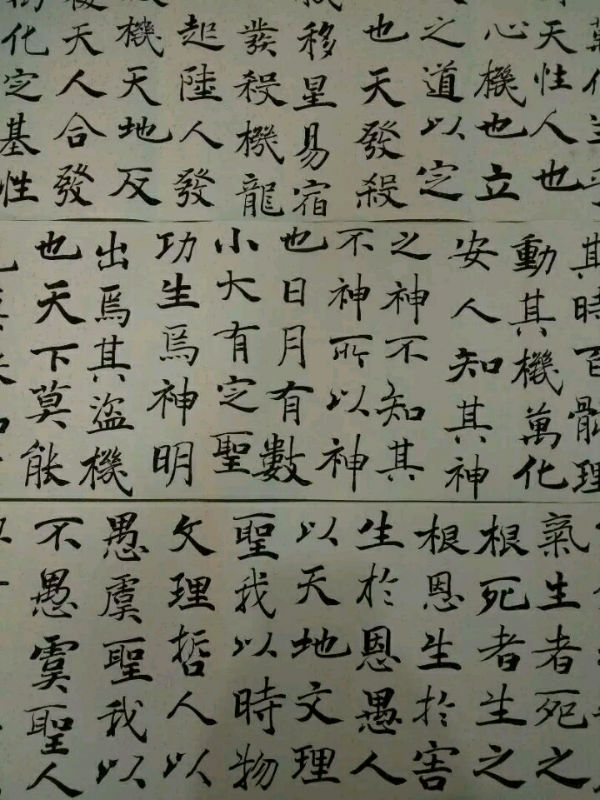 萬化生乎
天性人也
心機也立
之道以定
也天發殺
機移星易宿
發殺機龍
起陸人發
殺機天地反
覆天人合發
化定基性
其時百骸理
動其機萬化
安人知其神
之神不知其
不神所以神
也日月有數
小大有定聖
功生焉神明
出焉其盜機
也天下莫能
氣生者死之
根死者生之
根恩生於害
生於恩愚人
以天地文理
聖我以時物
文理哲人以
愚虞聖我以
不愚虞聖人